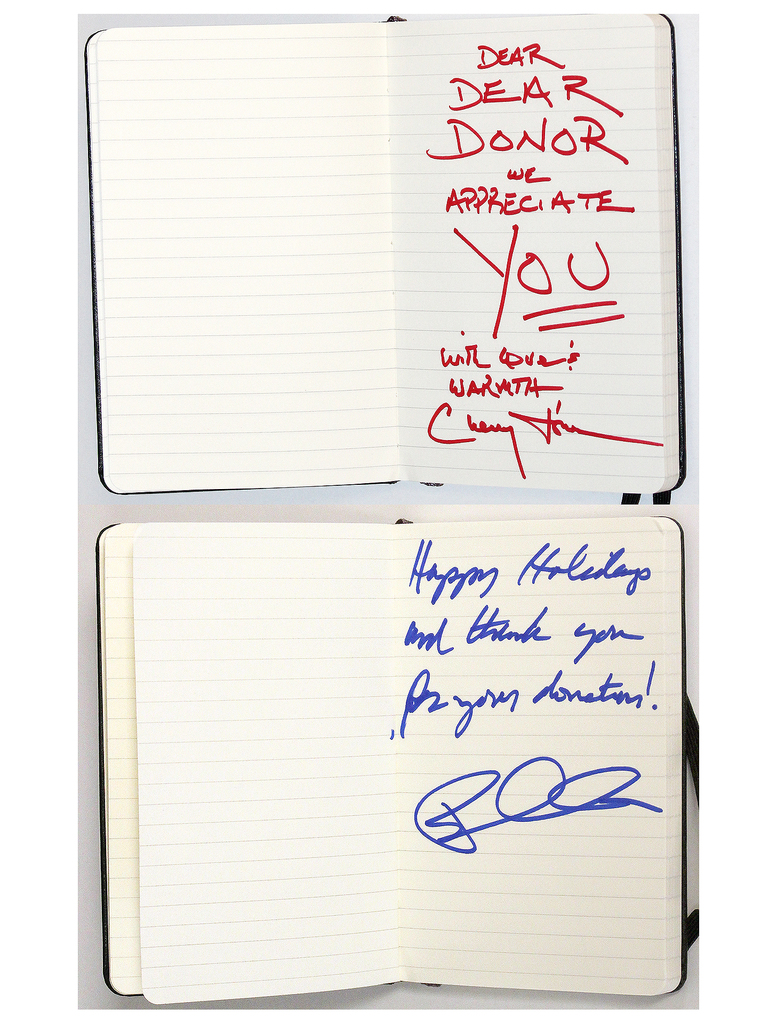 DEAR
DEAR
DONOR
WE
APPRECIATE
YOU
with love &
WARMTH
Cherry Jones
Happy Holidays
and thank you
for your donation!